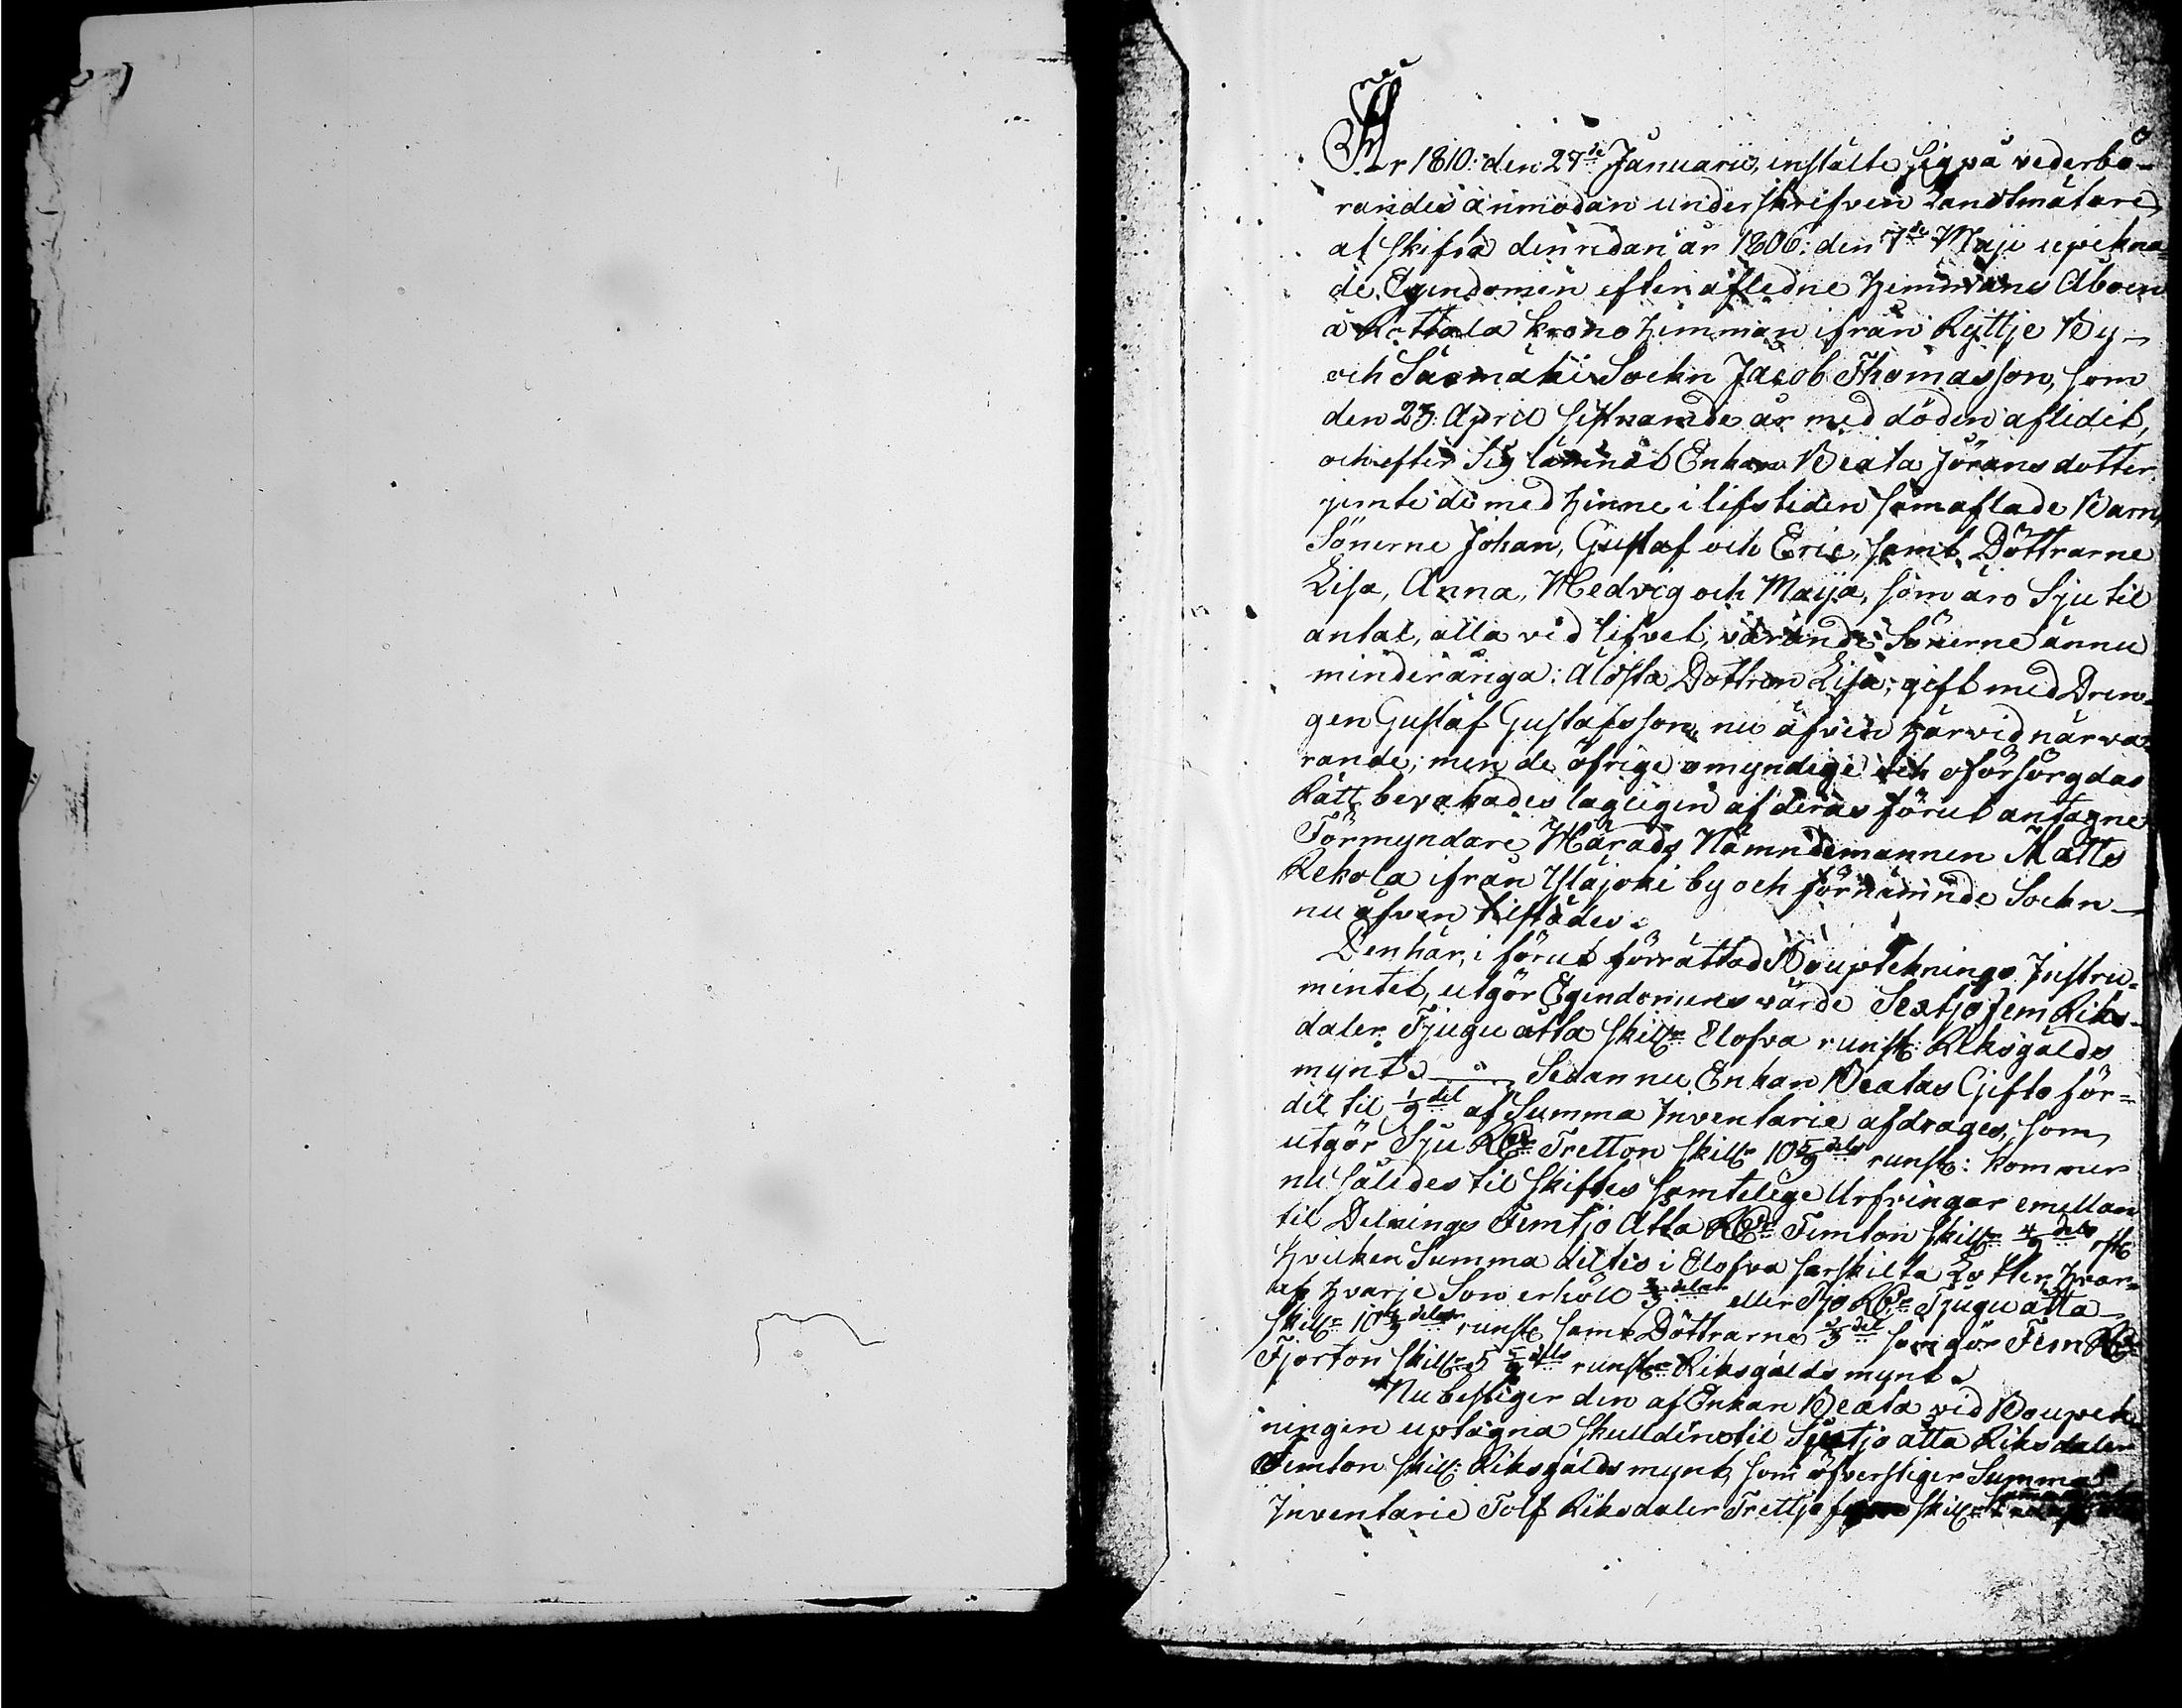 År 1810: den 27de Januarii, instälte sig på vederbö-
randes anmodan underskrifven Landtmätare,
at skifta den redan år 1806: den 7de Maji uptekna-
de Egendomen efter afledne Hemmans Åboen
å Rottala krono Hemman ifrån Ryttje By-
och Säsmäki Sockn Jacob Thomasson, som
den 23. April sistnämde år med döden aflidit,
och efter sig lämnat Enkan Beata Jöransdotter
jemte de med Henne i lifstiden samaflade Barn,
Sönerne Johan, Gustaf och Eric, samt Döttrarne
Lisa, Anna, Hedvig och Maija, som äro Sju til
antal, alla vid lifvet, varande Sönerne ännu
minderåriga: äldsta Dottren Lisa, gift med Dren-
gen Gustaf Gustafsson, nu äfven härvid närva-
rande, men de öfrige omyndige och oförsörgdas
Rätt bevakades lagligen af deras förut antagne
Förmyndare Härads Nämndemannen Matts
Rekola ifrån Yläjoki by och förnämnde Sockn
nu äfven tilstädes.
Den här, i förut förrättade Bouptecknings Instru-
mentet, utgör Egendomens värde Sextjo fem Riks-
daler Tjugu åtta skillr Elofva runst: Riksgälds
mynt. Sedan nu Enkan Beatas Gifto för-
del til 1/9 del af Summa Inventarie afdrages, som
utgör Sju Rdr Tretton skillr 10 5/9 dels runst: kommer
nu således til skiftes samtelige Arfvingar emellan
til Delnings Femtjo Åtta Rdr Femton skillr 4/9 dels rst:
Hvilken Summa deltes i Elofva särskilta Lotter, hvar-
af Hvarje Son erhölt 2/3 delar eller Tjo Rdr Tjugu åtta
skillr 10 delar runst: samt Döttrarne 1/3 del som gör Fem Rdr
Fjorton skillr 5 dels runst: Riksgälds mynt.
Nu bestiger den af Enkan Beata vid Bouptek-
ningen uptagna skulden til Sjuttjo åtta Riksdaler
Femton skill: Riksgälds mynt, som öfverstiger Summa
Inventarie Tolf Riksdaler Trettjo skillr